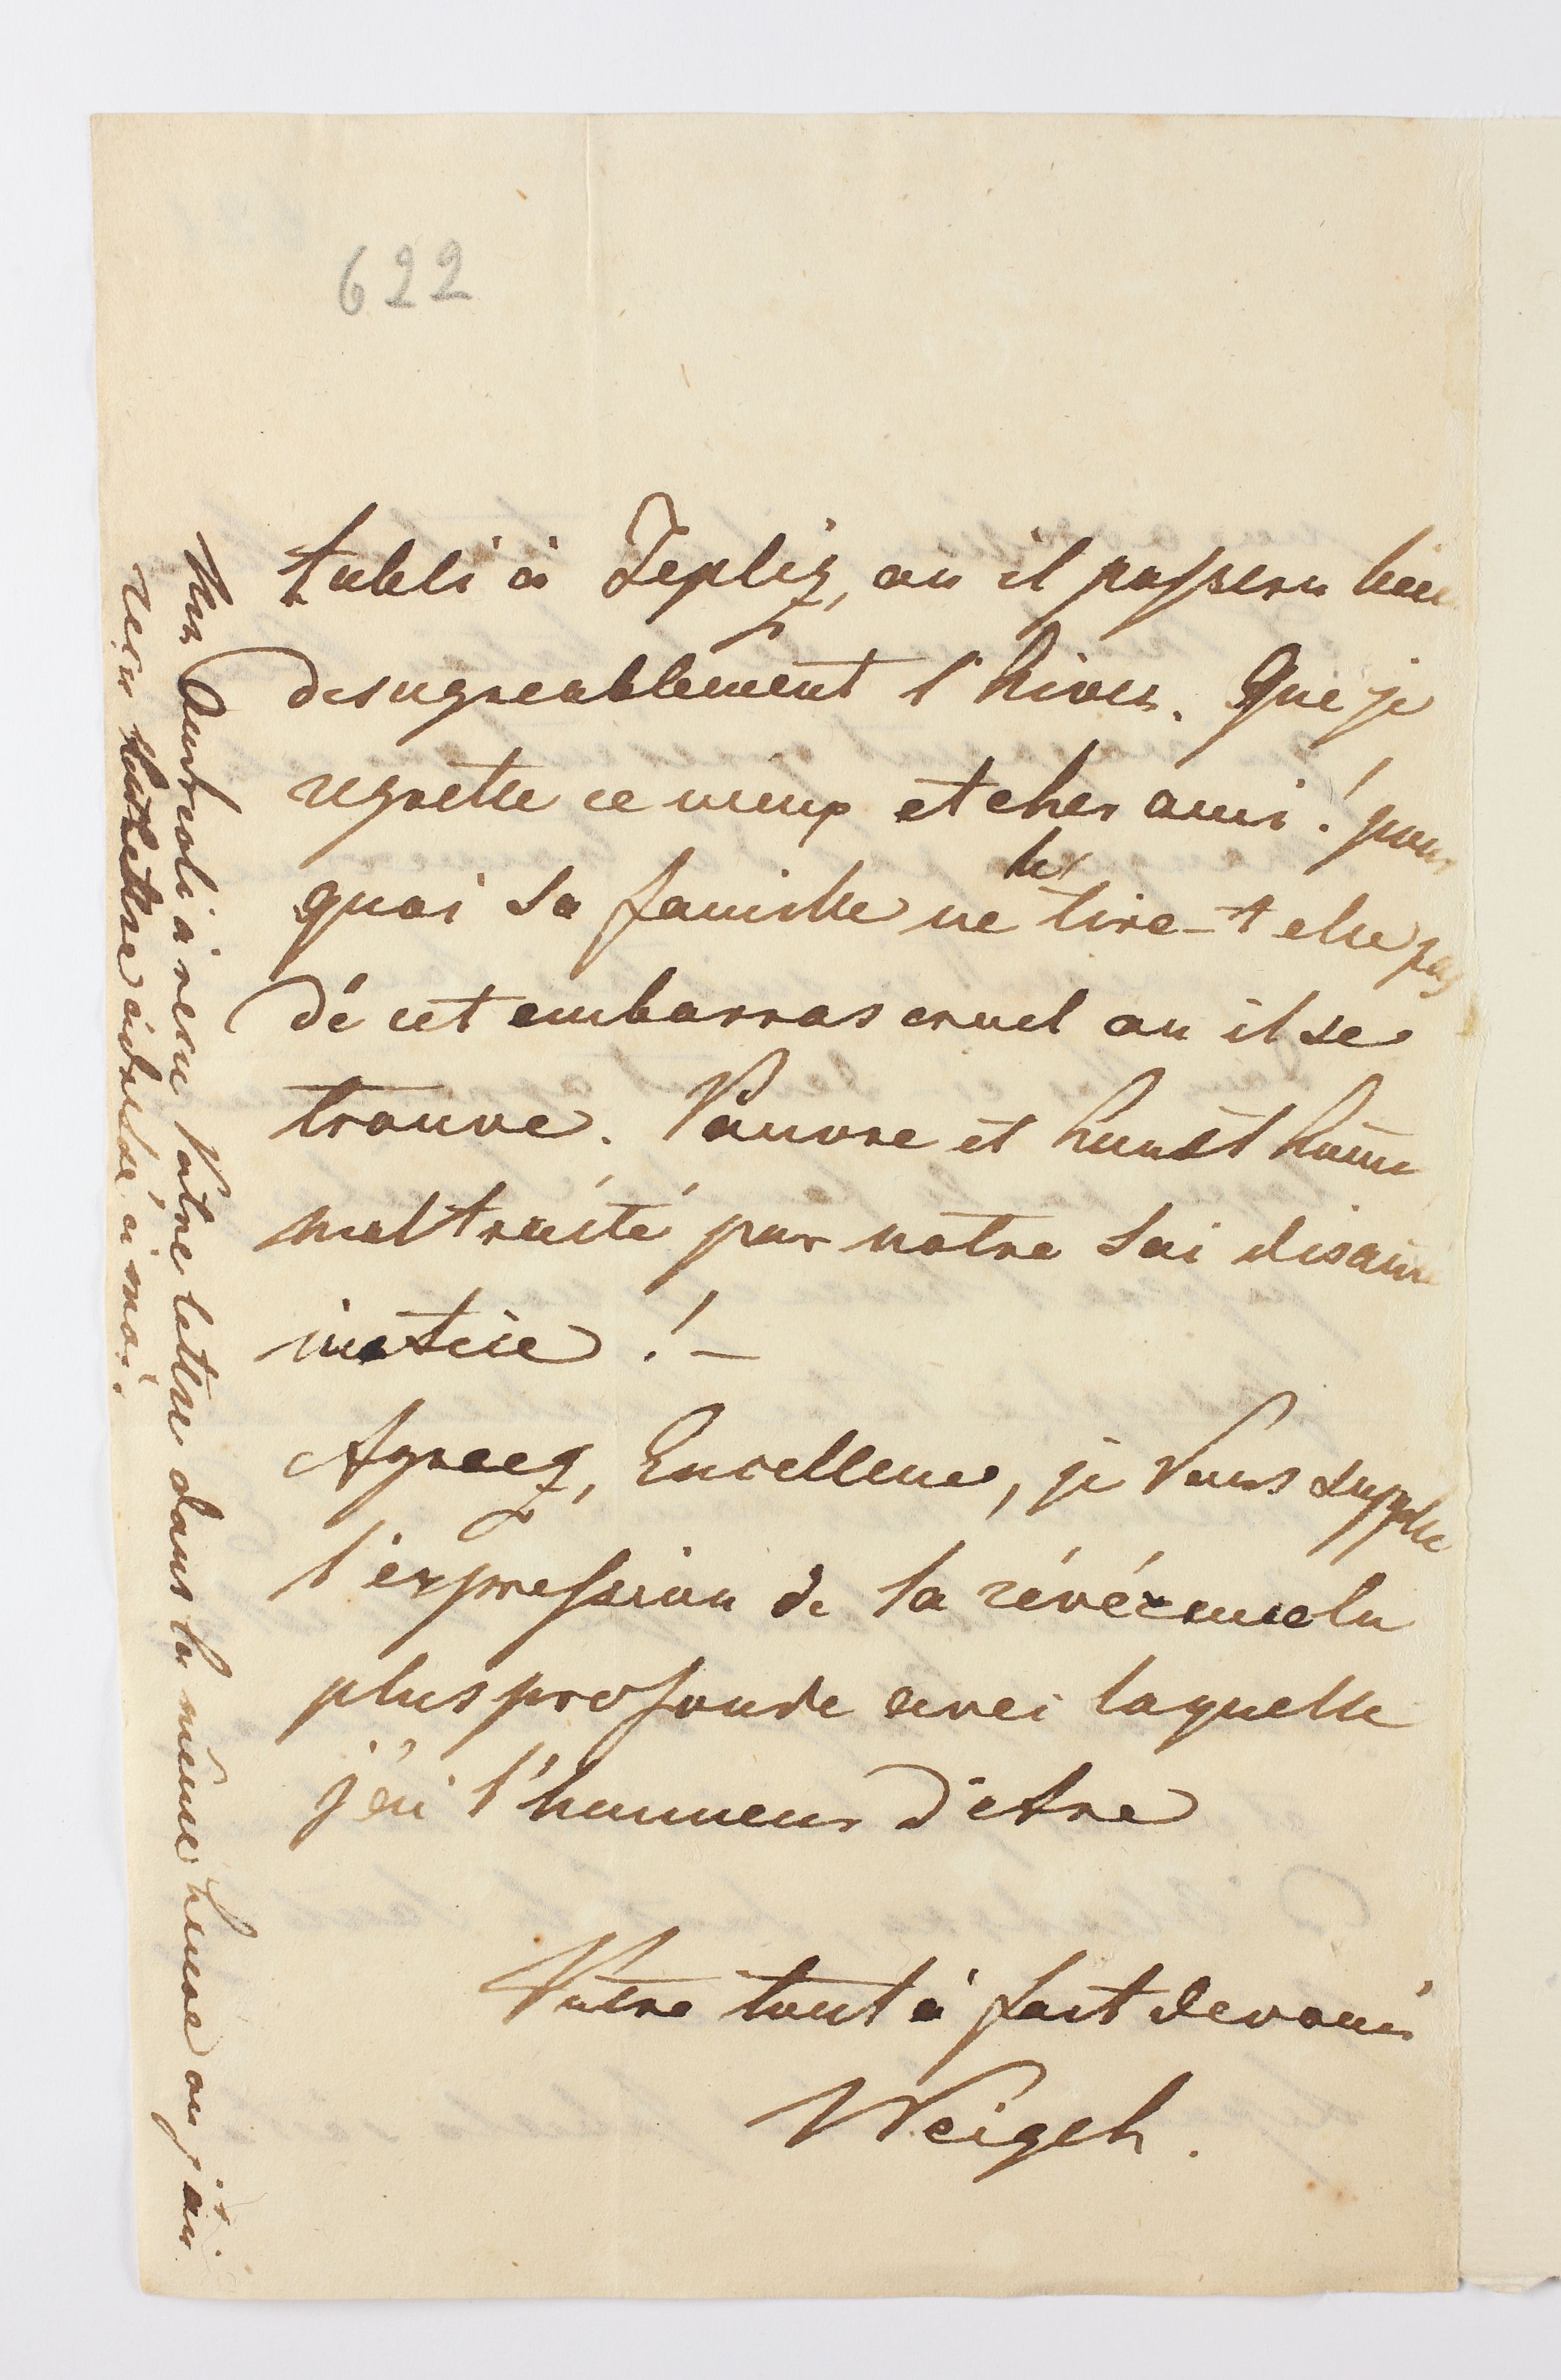 622
tabli à Tepliz, ou il passera bien
desagreablement l'hiver. Que je
regrette ce vieux et cher ami! pour
quoi sa famille ne le tire-t elle pas
de cet embarras cruel ou il se
trouve. Pauvre et honet home
maltraité par notre soi disant
justice! –
Agreez, Excellence, je Vous supplie
l'expression de la révérence la
plus profonde avec laquelle
j'ai l'honneur d'etre
Votre tout à fait devoué
Weigel.
à recu Votre lettre dans la même heure ou j'ai
reçu la lettre adressé à moi.